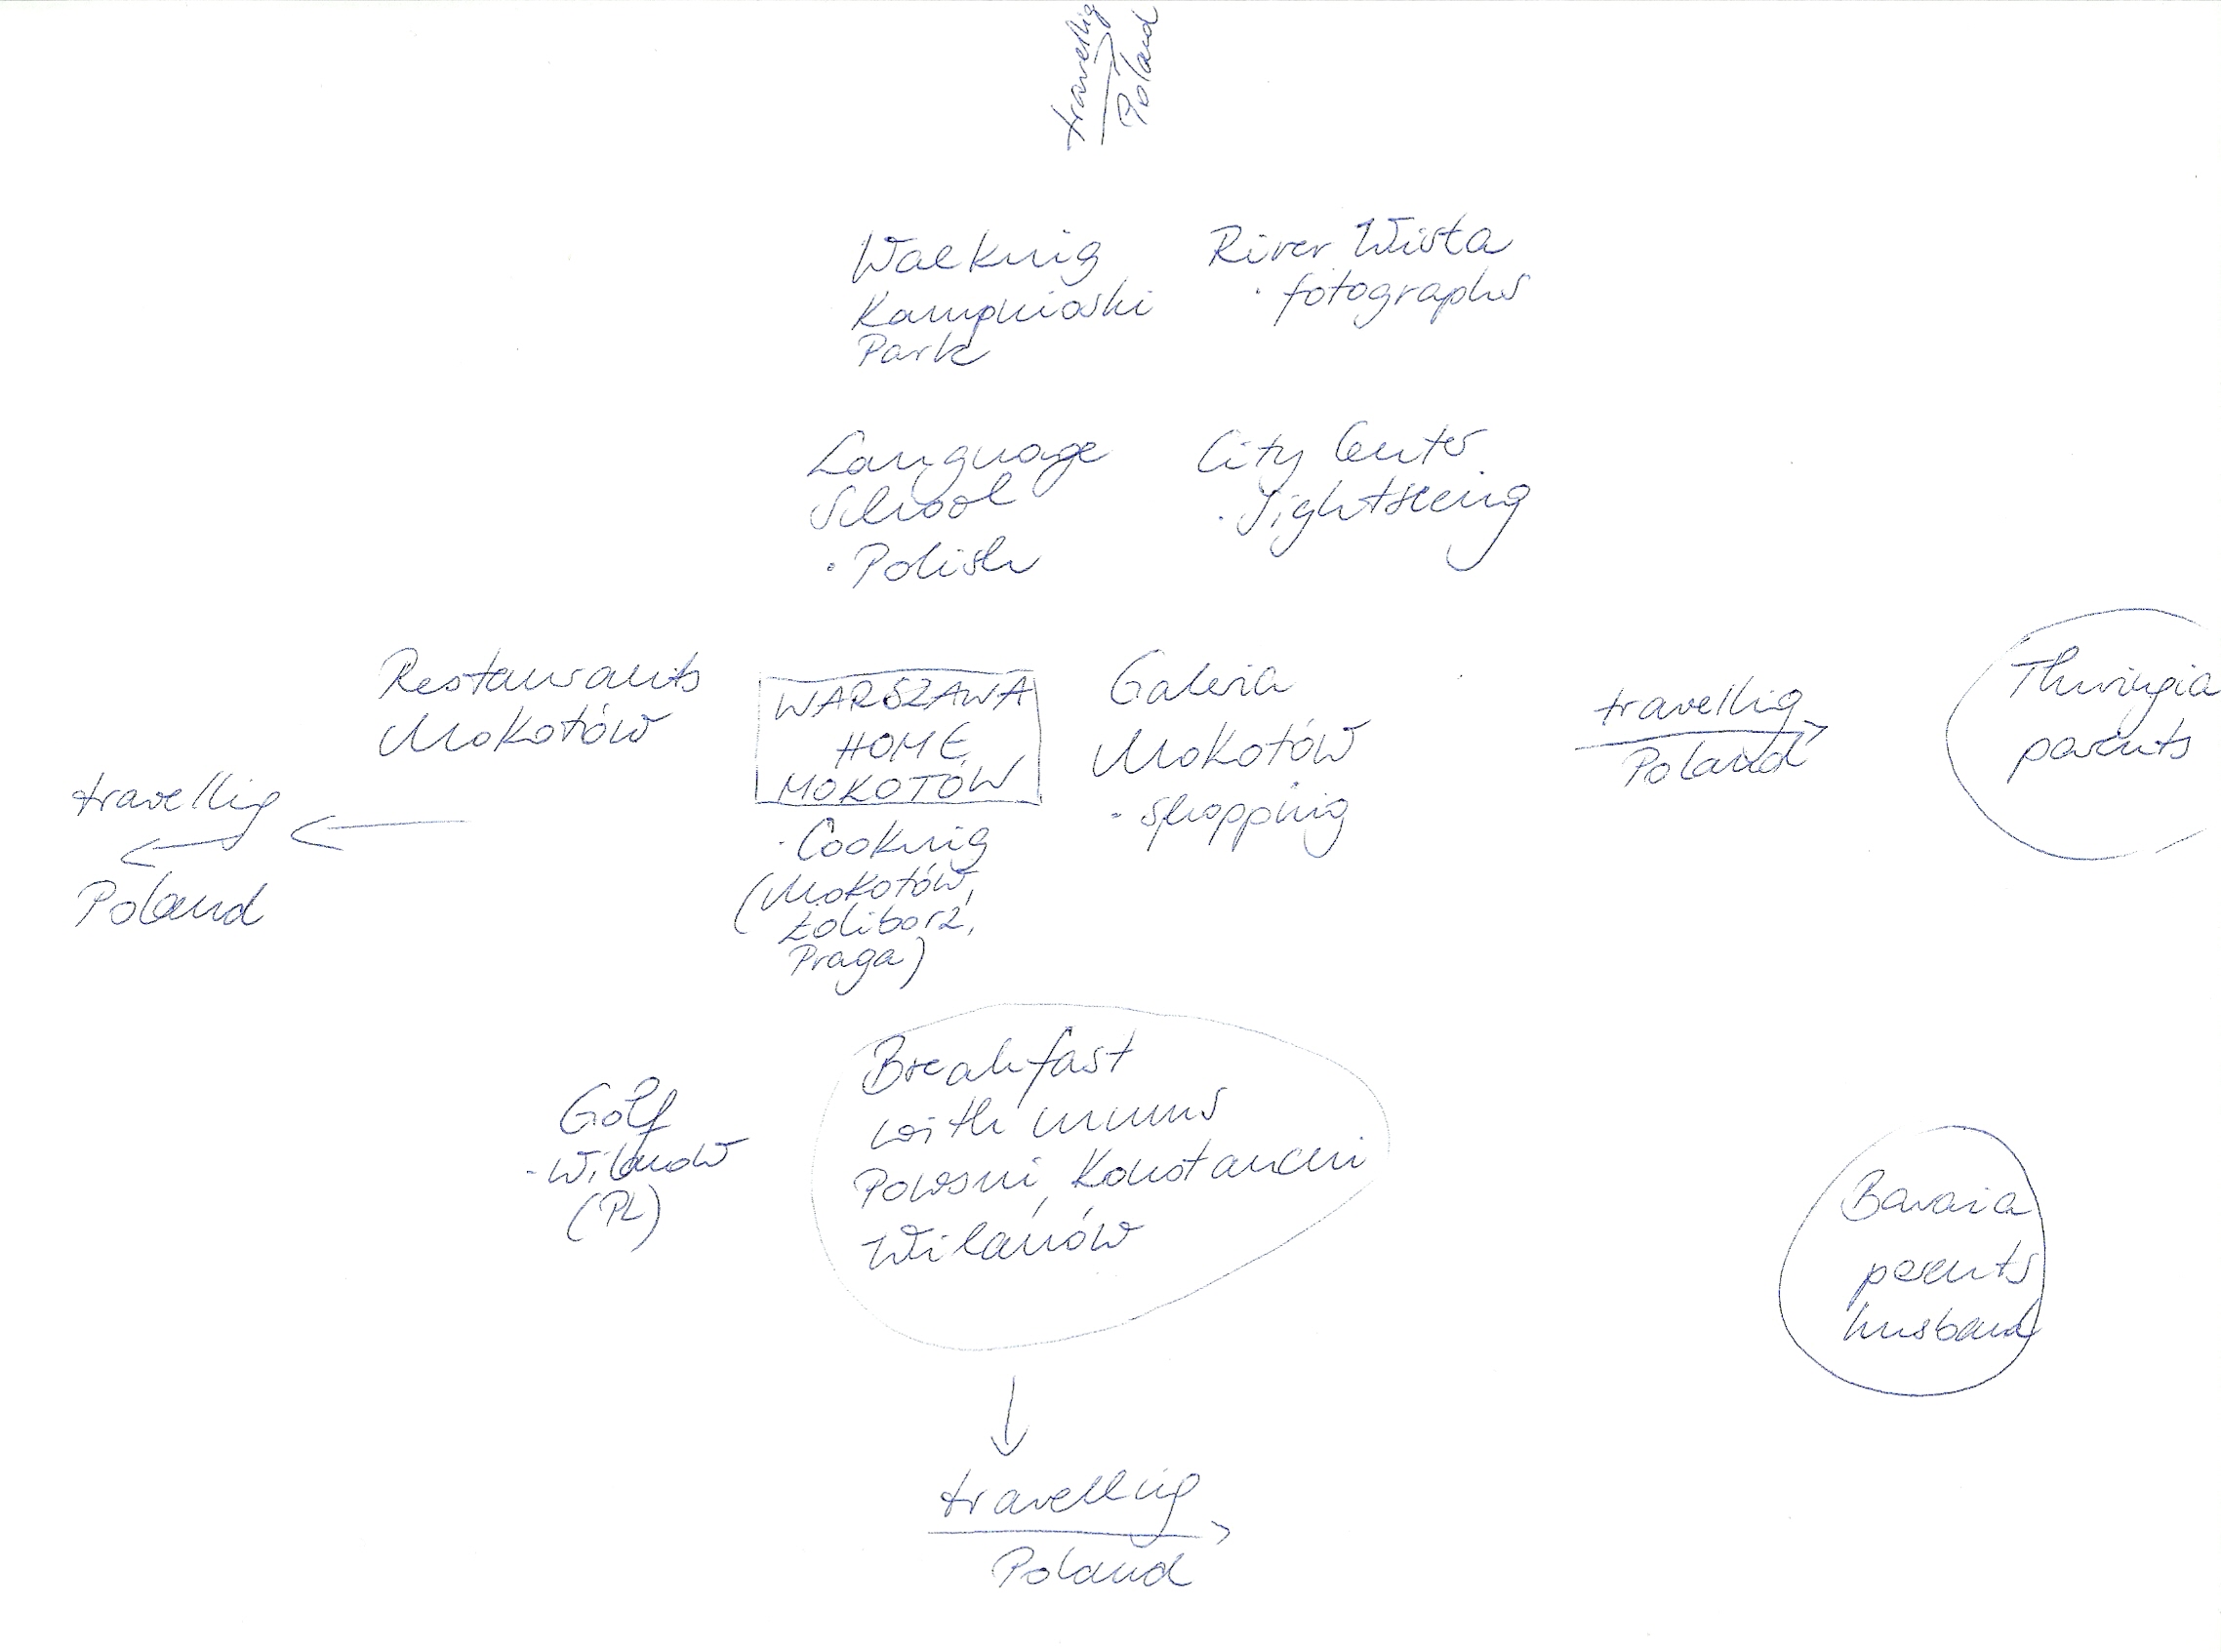 travellig
Poland
Walking
Kampinoski
Park
River Wisła
· fotographs
Language
School
· Polish
City Center
· Sightseeing
Restaurants
Mokotów
WARSZAWA
HOME
MOKOTÓW
Galeria
Mokotów
- shopping
travellig
Poland
Thuringia
parents
travellig
Poland
· Cooking
(Mokotów,
Żoliborz,
Praga)
Golf
- Wilanów
(PL)
Breakfast
with mums
Powsin, Konstancin
Wilanów
Bavaria
parents
husband
travelling
Poland